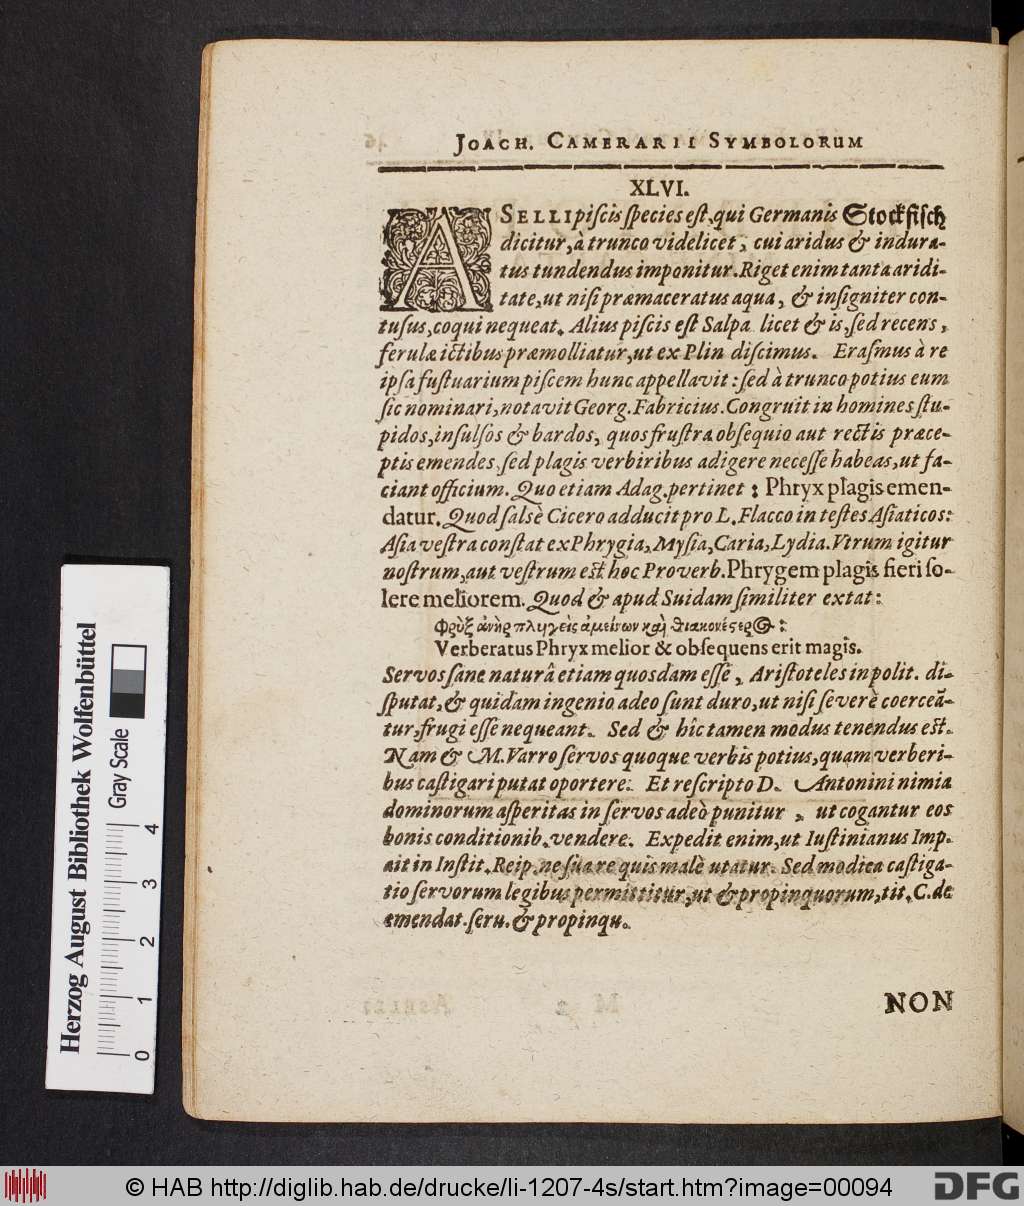 JOACH. CAMERARII SYMBOLORUM
XLVI.
ASELLI piſcis ſpecies eſt, qui Germanis Stockfiſch
dicitur, à trunco videlicet, cui aridus & indura-
tus tundendus imponitur. Riget enim tanta aridi-
tate, ut niſi præmaceratus aqua, & inſigniter con-
tuſus, coqui nequeat. Alius piſcis eſt Salpa licet & is, ſed recens,
ferulæ ictibus præmolliatur, ut ex Plin diſcimus. Eraſmus à re
ipſa fuſtuarium piſcem hunc appellavit: ſed à trunco potius eum
ſic nominari, notavit Georg. Fabricius. Congruit in homines ſtu-
pidos, inſulſos & bardos, quos fruſtra obſequio aut rectis præce-
ptis emendes, ſed plagis verbiribus adigere neceſſe habeas, ut fa-
ciant officium. Quo etiam Adag. pertinet: Phryx plagis emen-
datur. Quod ſalsè Cicero adducit pro L. Flacco in teſtes Aſiaticos:
Aſia veſtra conſtat ex Phrygia, Myſia, Caria, Lydia. Vtrum igitur
noſtrum, aut veſtrum eſt hoc Proverb. Phrygem plagis fieri ſo-
lere meliorem. Quod & apud Suidam ſimiliter extat:
Φρὺξ ἀνὴρ πληγεὶς ἀμείνων καὶ διακονέςερος:
Verberatus Phryx melior & obſequens erit magis.
Servos ſane naturâ etiam quosdam eſſe, Ariſtoteles in polit. di-
ſputat, & quidam ingenio adeo ſunt duro, ut niſi ſeverè coerceā-
tur, frugi eſſe nequeant. Sed & hîc tamen modus tenendus eſt.
Nam & M. Varro ſervos quoque verbis potius, quam verberi-
bus caſtigari putat oportere. Et reſcripto D. Antonini nimia
dominorum aſperitas in ſervos adeò punitur, ut cogantur eos
bonis conditionib. vendere. Expedit enim, ut Iuſtinianus Imp.
ait in Inſtit. Reip. ne ſua re quis malè utatur. Sed modica caſtiga-
tio ſervorum legibus permittitur, ut & propinquorum, tit. C. de
emendat. ſeru. & propinqu.
NON
Herzog August Bibliothek Wolfenbüttel
Gray Scale
0 1 2 3 4
© HAB http://diglib.hab.de/drucke/li-1207-4s/start.htm?image=00094
digilib
DFG